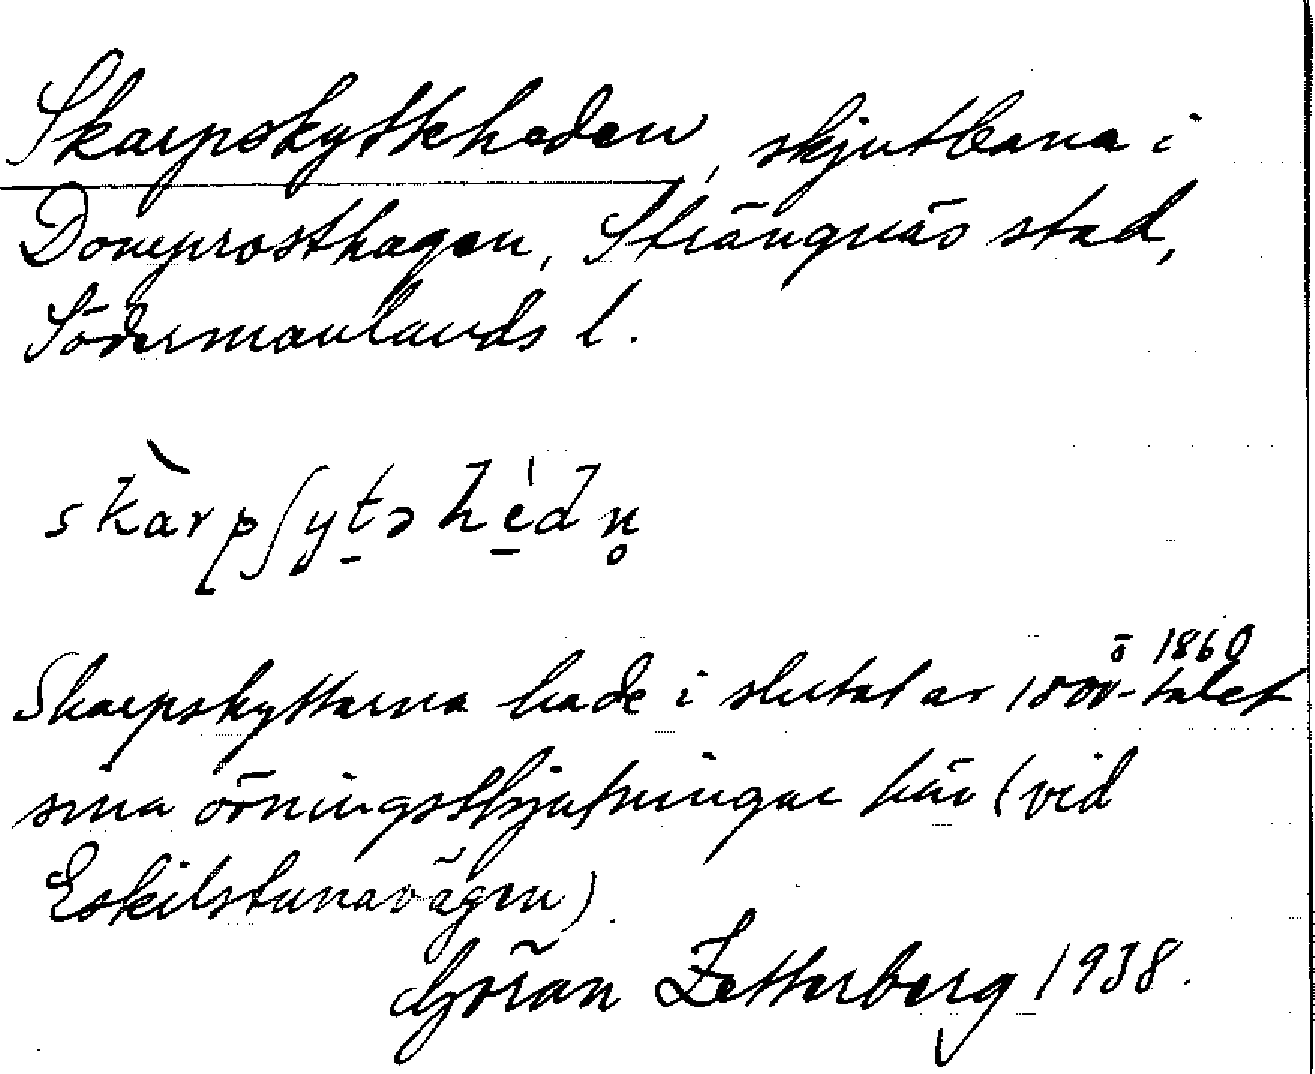 Skarpskytteheden, skjutbana i
Domprosthagen, Strängnäs stad,
Södermanlands l.
skàrpʃyt̲əhe̲̍dn̥
ö 1860
Skarpskyttarna hade i slutet av 1800-talet
sina övningsskjutningar här (vid
Eskilstunavägen).
Göran Zetterberg 1938.